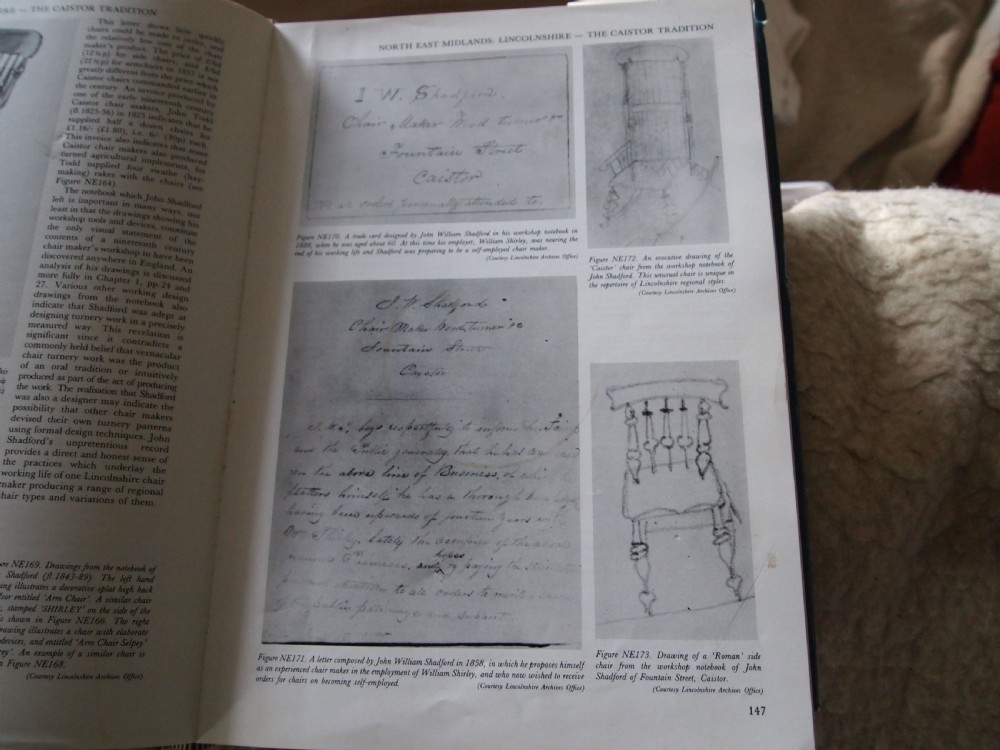 — THE CAISTOR TRADITION
This letter shows how quickly
chairs could be made to order, and
the relatively low cost of the chair
maker's product. The price of
for side chairs, and
for armchairs in 1857 is not
greatly different from the price which
Caistor chairs commanded earlier in
the century. An invoice produced by
one of the early nineteenth century
Caistor chair makers, John Todd
in 1825 indicates that he
supplied half a dozen chairs for
£1.16/- (£1.80), i.e. 6/- (30p) each.
This invoice also indicates that some
Caistor chair makers also produced
turned agricultural implements, for
Todd supplied four swathe (hay-
making) rakes with the chairs (see
Figure NE164).
The notebook which John Shadford
left is important in many ways, not
least in that the drawings showing his
workshop tools and devices, constitute
the only visual statement of the
contents of a nineteenth century
chair maker's workshop to have been
discovered anywhere in England. An
analysis of his drawings is discussed
more fully in Chapter 1, pp.24 and
27. Various other working design
drawings from the notebook also
indicate that Shadford was adept at
designing turnery work in a precisely
measured way. This revelation is
significant since it contradicts a
commonly held belief that vernacular
chair turnery work was the product
of an oral tradition or intuitively
produced as part of the act of producing
the work. The realisation that Shadford
was also a designer may indicate the
possibility that other chair makers
devised their own turnery patterns
using formal design techniques. John
Shadford's unpretentious record
provides a direct and honest sense of
the practices which underlay the
working life of one Lincolnshire chair
maker producing a range of regional
chair types and variations of them.
NE169. Drawings from the notebook of
Shadford (fl.1843-89). The left hand
illustrates a decorative splat high back
entitled 'Arm Chair'. A similar chair
stamped 'SHIRLEY' on the side of the
shown in Figure NE166. The right
illustrates a chair with elaborate
and entitled 'Arm Chair Selpey
An example of a similar chair is
Figure NE168.
(Courtesy Lincolnshire Archives Office)
NORTH EAST MIDLANDS: LINCOLNSHIRE — THE CAISTOR TRADITION
I W. Shadford.
Chair Maker Wood turner &c
Fountain Street
Caistor
all orders punctually attended to.
Figure NE170. A trade card designed by John William Shadford in his workshop notebook in
1888, when he was aged about 60. At this time his employer, William Shirley, was nearing the
end of his working life and Shadford was preparing to be a self-employed chair maker.
(Courtesy Lincolnshire Archives Office)
J. W. Shadford
Chair Maker Wood turner &c
Fountain Street
Caistor
begs respectfully to inform the
and the Public generally that he
in the above line of Business,
flatters himself he has a thorough
having been upwards of fourteen years
Shirley. lately the
hopes
and by paying the
attention to all orders to merit
public patronage and support
Figure NE171. A letter composed by John William Shadford in 1858, in which he proposes himself
as an experienced chair maker in the employment of William Shirley, and who now wished to receive
orders for chairs on becoming self-employed.
(Courtesy Lincolnshire Archives Office)
Figure NE172. An evocative drawing of the
'Caistor' chair from the workshop notebook of
John Shadford. This unusual chair is unique in
the repertoire of Lincolnshire regional styles.
(Courtesy Lincolnshire Archives Office)
Figure NE173. Drawing of a 'Roman' side
chair from the workshop notebook of John
Shadford of Fountain Street, Caistor.
(Courtesy Lincolnshire Archives Office)
147